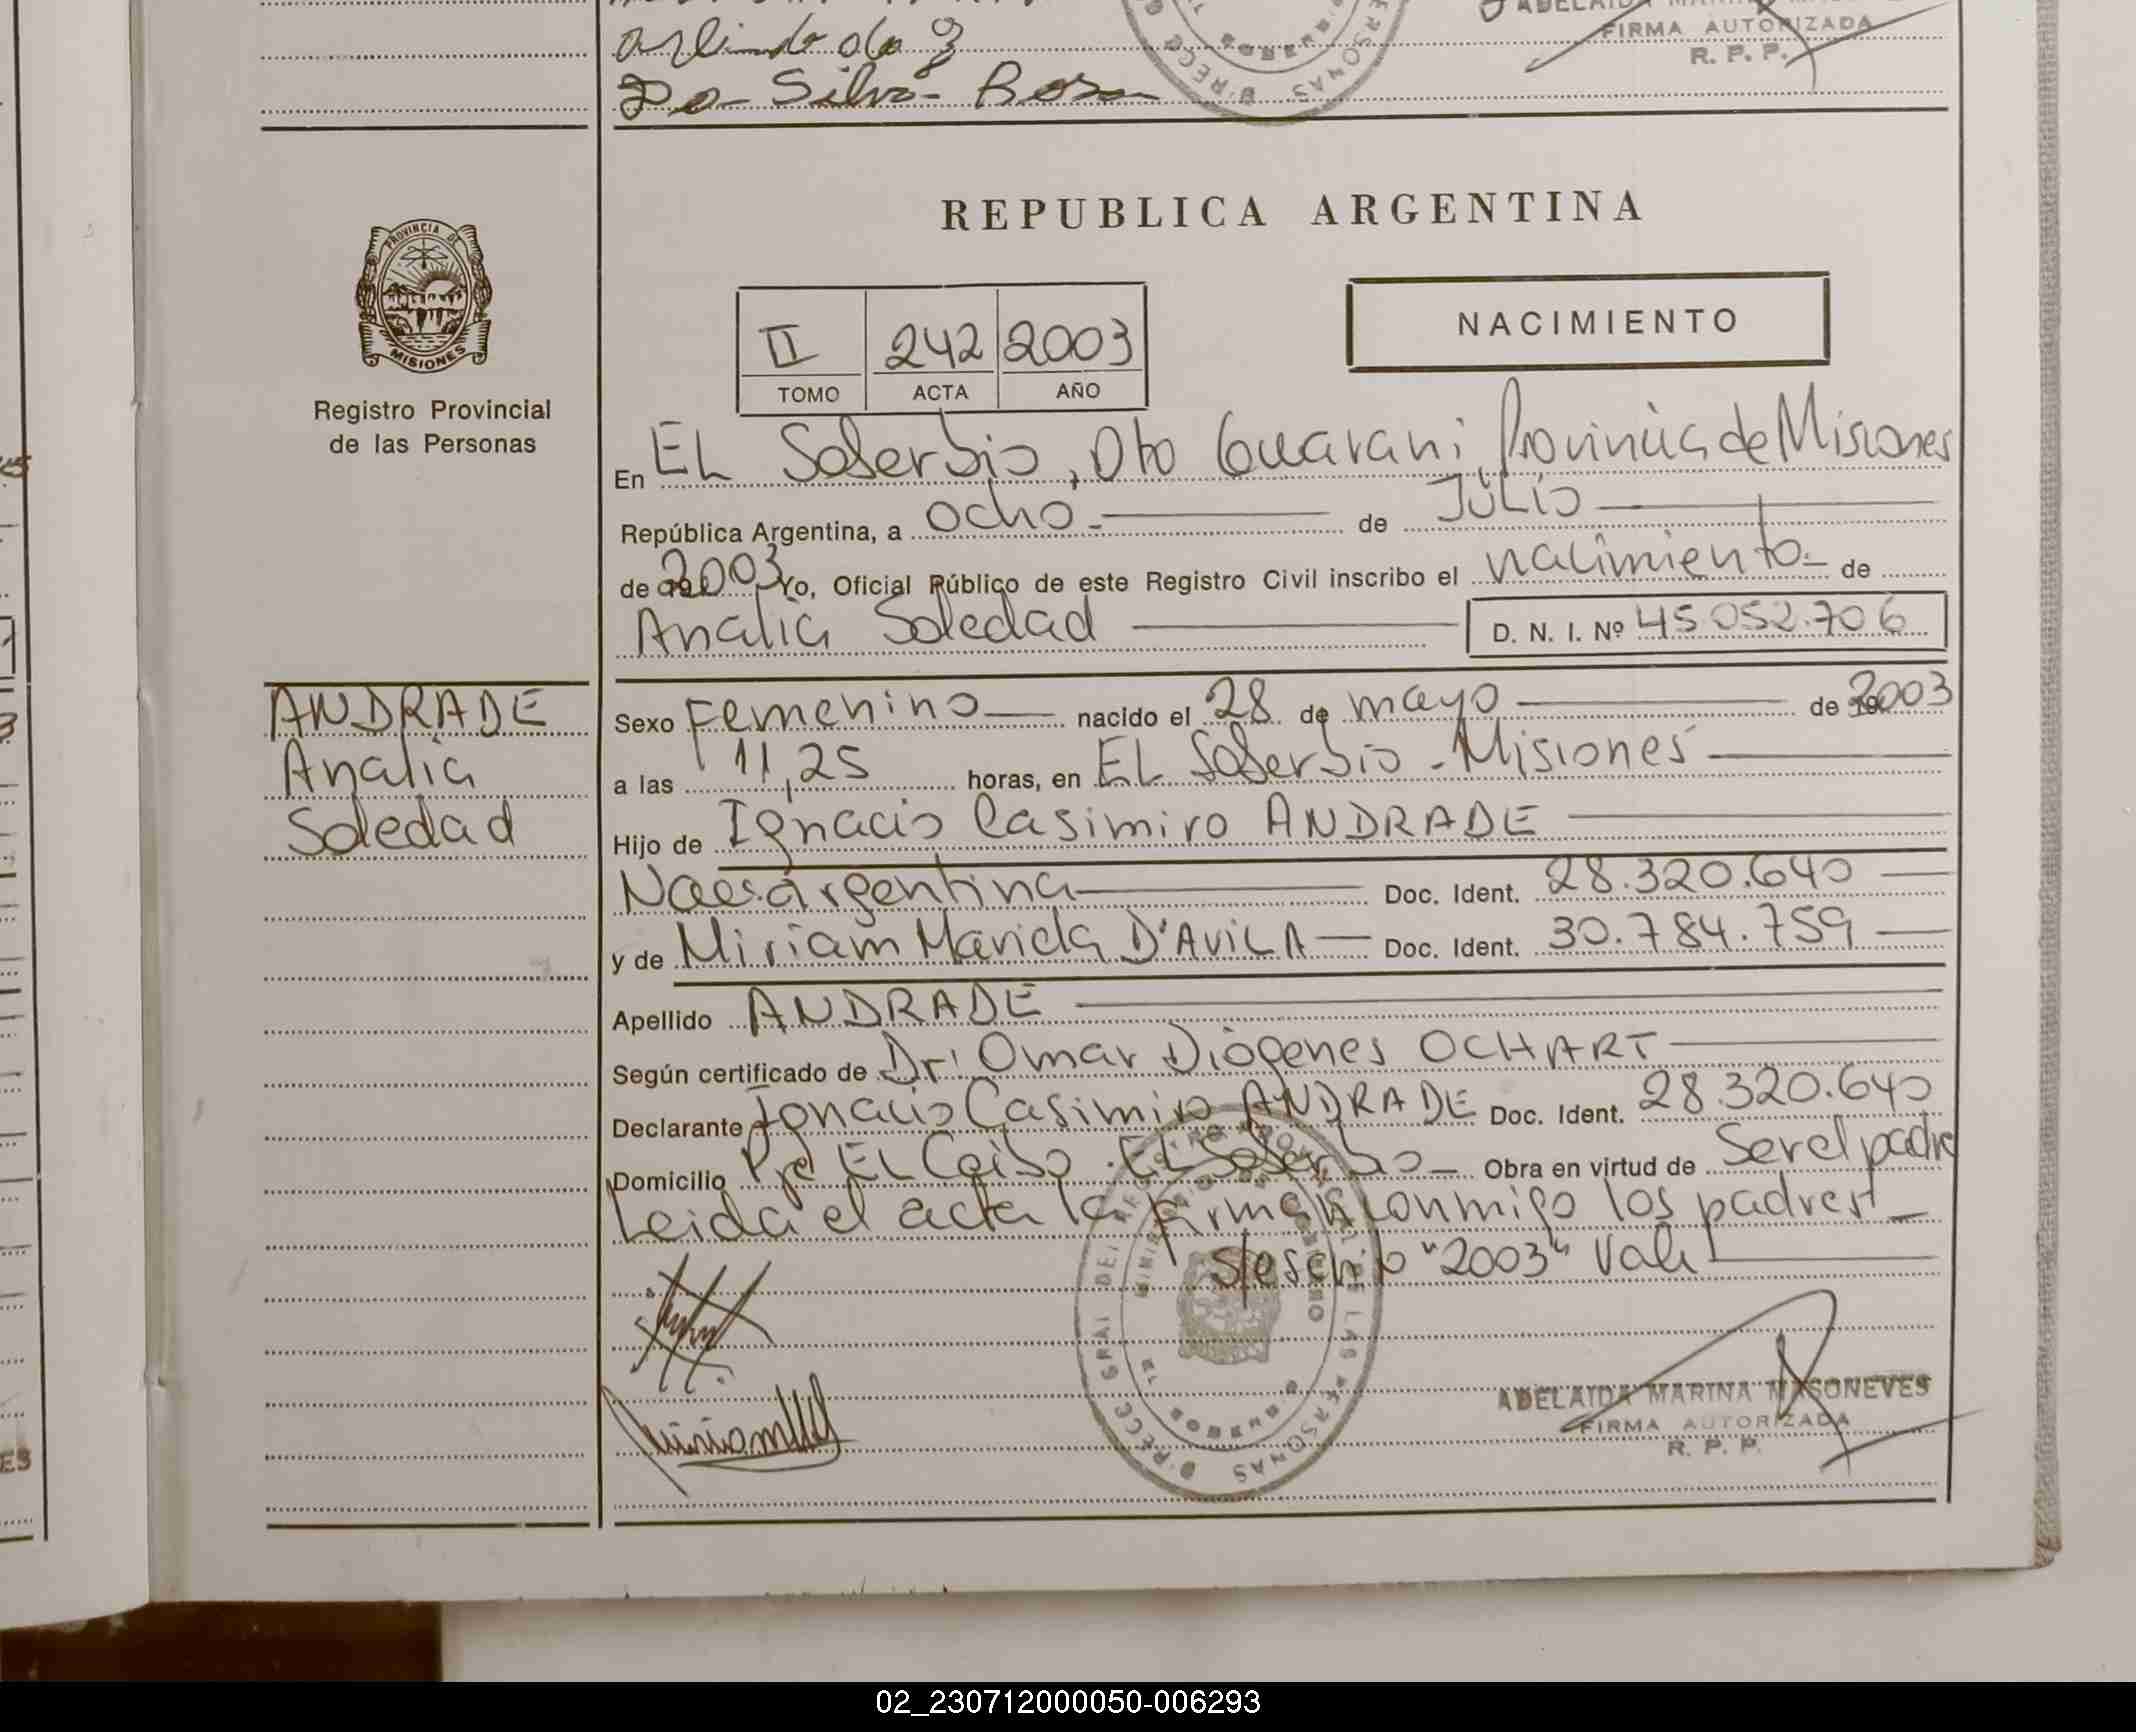 Arlindo da S
Da Silva Rosa
FIRMA AUTORIZADA
R. P. P.
PROVINCIA DE
MISIONES
Registro Provincial
de las Personas
REPUBLICA ARGENTINA
NACIMIENTO
II 242 2003
TOMO ACTA AÑO
En EL Soberbio, Dto Guarani, Provincia de Misiones
República Argentina, a ocho.- de JULIO
de 2003 Yo, Oficial Público de este Registro Civil inscribo el nacimiento- de
Analia Soledad D. N. I. Nº 45 052.706
ANDRADE
Analia
Soledad
Sexo Femenino nacido el 28 de mayo de 2003
a las 11,25 horas, en EL Soberbio - Misiones
Hijo de Ignacio Casimiro ANDRADE
Nac. argentina Doc. Ident. 28.320.640
y de Miriam Mariela D'AVILA Doc. Ident. 30.784.759
Apellido ANDRADE
Según certificado de Dr. Omar Diógenes OCHART
Declarante Ignacio Casimiro ANDRADE Doc. Ident. 28.320.640
Domicilio Pje EL Ceibo. EL Soberbio Obra en virtud de Ser el padre
Leida el acta la firman conmigo los padres
S/escrito "2003" Vale
ADELAIDA MARINA MASONEVES
FIRMA AUTORIZADA
R. P. P.
02_230712000050-006293